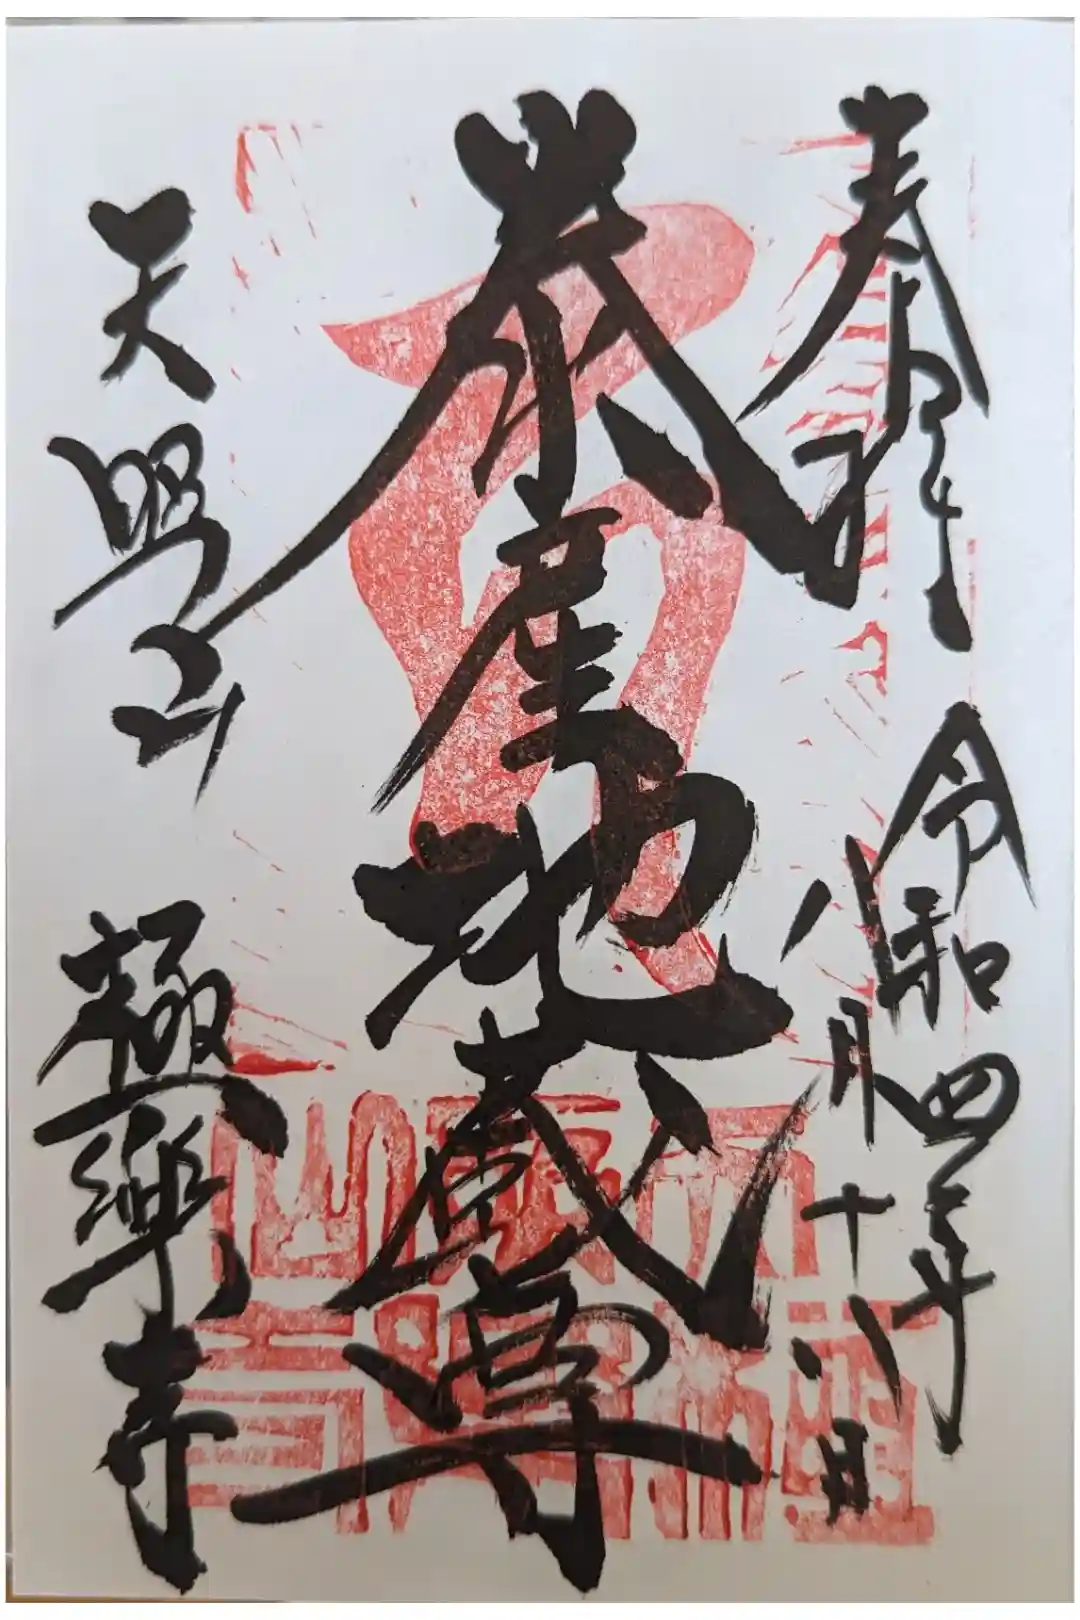 奉拝
令和四年
八月十八日
泰産地蔵尊
天照山
極樂寺